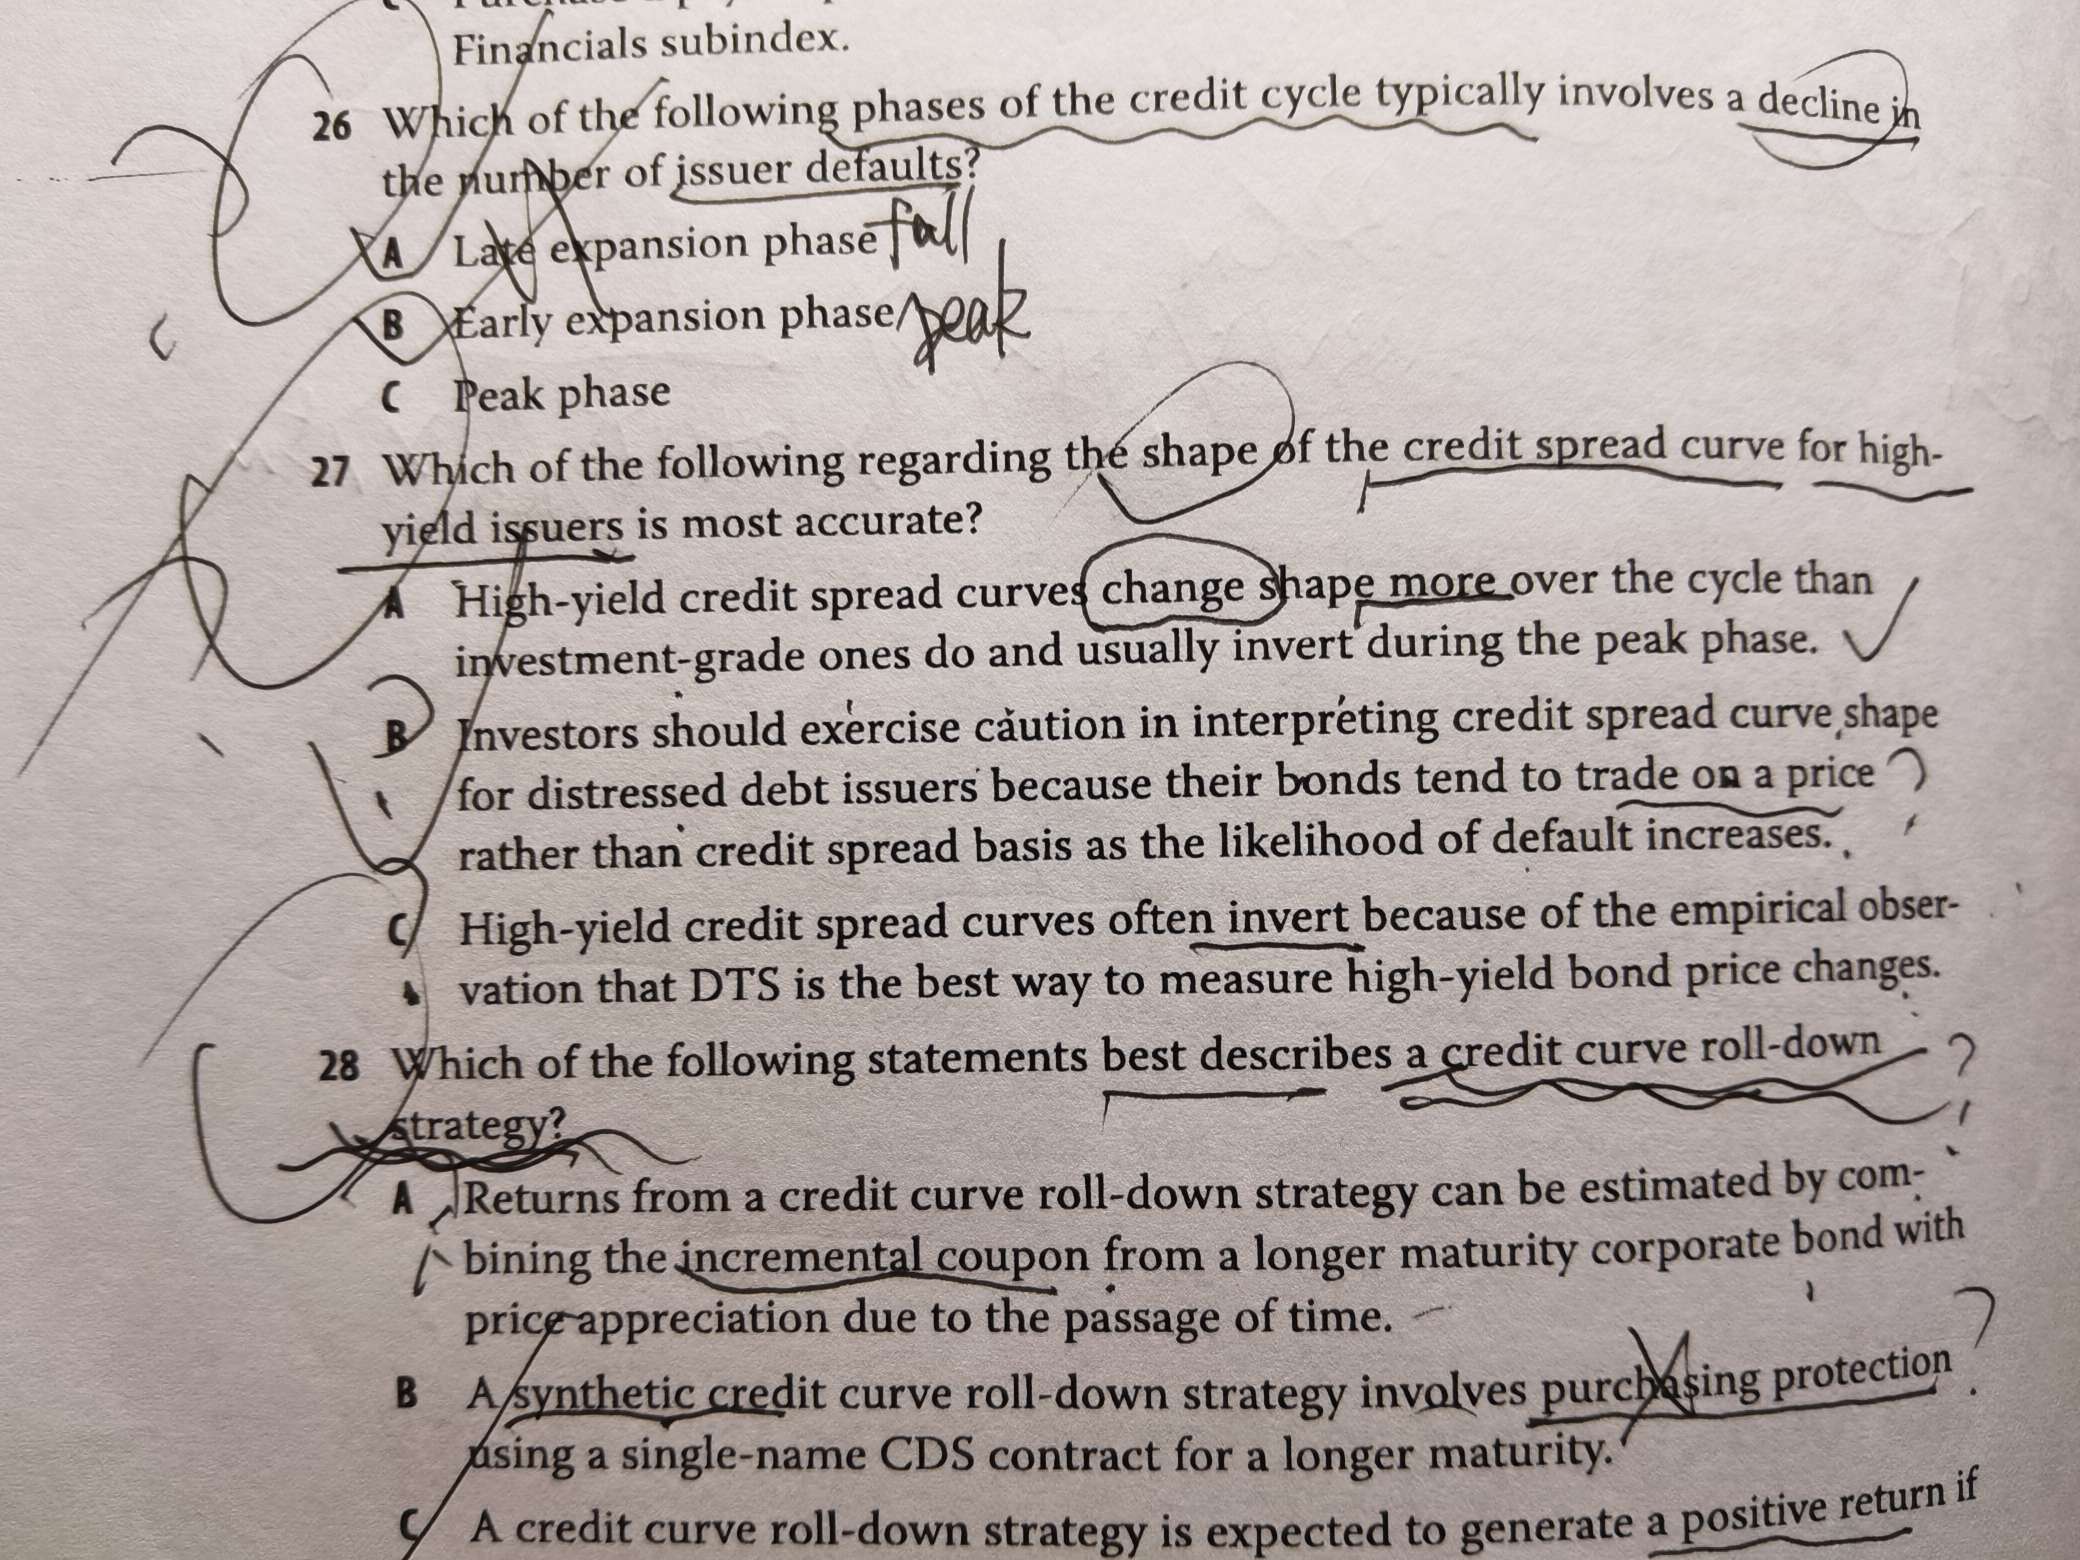 Financials subindex.
26 Which of the following phases of the credit cycle typically involves a decline in
the number of issuer defaults?
A Late expansion phase fall
B Early expansion phase peak
C Peak phase
27 Which of the following regarding the shape of the credit spread curve for high-
yield issuers is most accurate?
A High-yield credit spread curves change shape more over the cycle than
investment-grade ones do and usually invert during the peak phase.
B Investors should exercise caution in interpreting credit spread curve shape
for distressed debt issuers because their bonds tend to trade on a price
rather than credit spread basis as the likelihood of default increases.
C High-yield credit spread curves often invert because of the empirical obser-
vation that DTS is the best way to measure high-yield bond price changes.
28 Which of the following statements best describes a credit curve roll-down
strategy?
A Returns from a credit curve roll-down strategy can be estimated by com-
bining the incremental coupon from a longer maturity corporate bond with
price appreciation due to the passage of time.
B A synthetic credit curve roll-down strategy involves purchasing protection
using a single-name CDS contract for a longer maturity.
C A credit curve roll-down strategy is expected to generate a positive return if